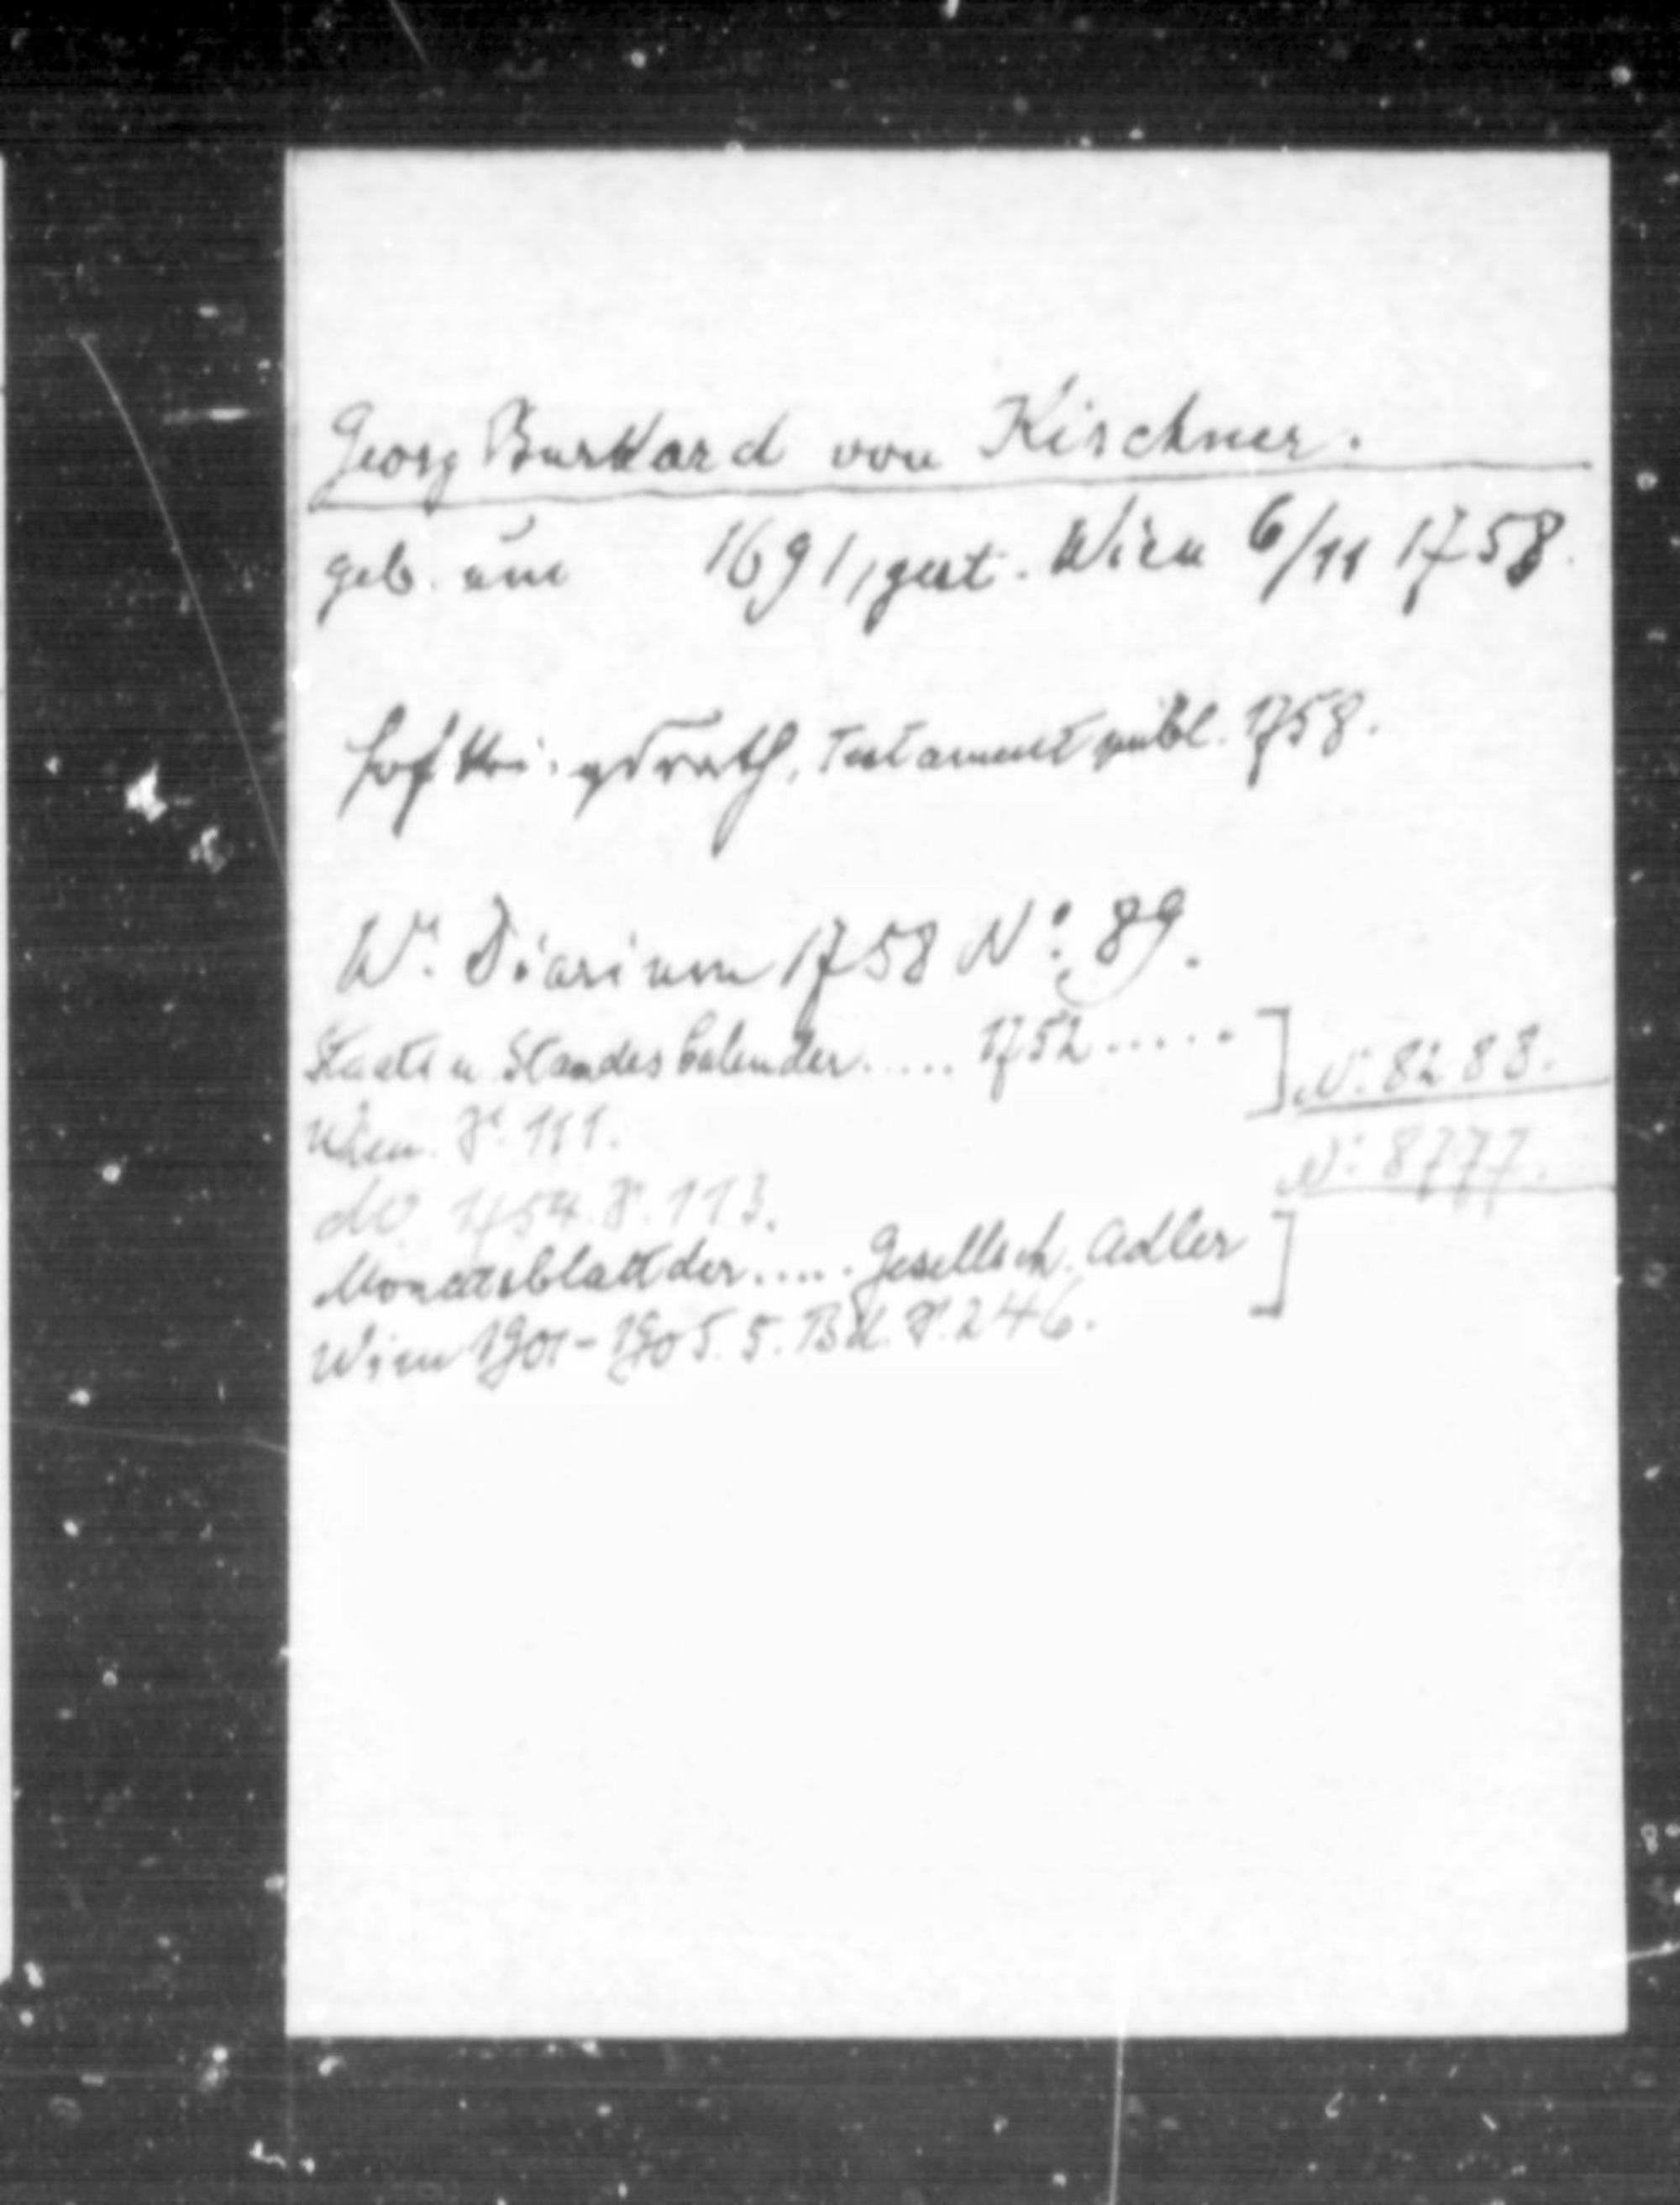 Georg Burkard von Kirschner.
geb. um 1691, gest. Wien 6/11 1758.
Hofkriegsrath, Testament publ. 1758.
Wr. Diarium 1758 No: 89.
Staats u. Standes Calender..... 1752.....
] N: 8283.
Wien. S. 111.
N: 8777.
do 1754. S. 113.
Monatsblatt der..... Gesellsch. Adler ]
Wien 1901-1905. 5. Bd. S. 246.